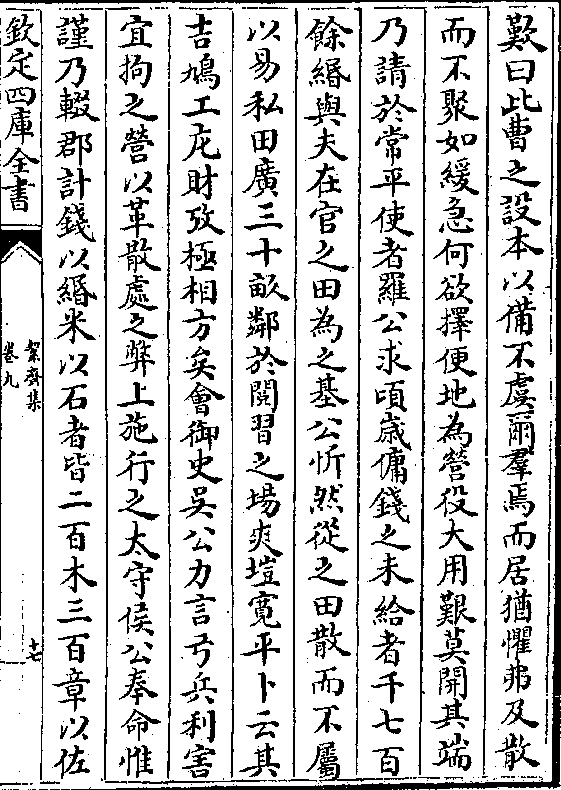 歎曰此曹之設本以備不虞爾羣焉而居猶懼弗及散
而不聚如緩急何欲擇便地為營役大用艱莫開其端
乃請於常平使者羅公求頃歲傭錢之未給者千七百
餘緡與夫在官之田為之基公忻然從之田散而不屬
以易私田廣三十畝鄰於閱習之場爽塏寛平卜云其
吉鳩工庀財攷極相方矣會御史吳公力言弓兵利害
宜拘之營以革散處之弊上施行之太守侯公奉命惟
謹乃輟郡計錢以緡米以石者皆二百木三百章以佐
欽定四庫全書
絜齋集
卷九
十七